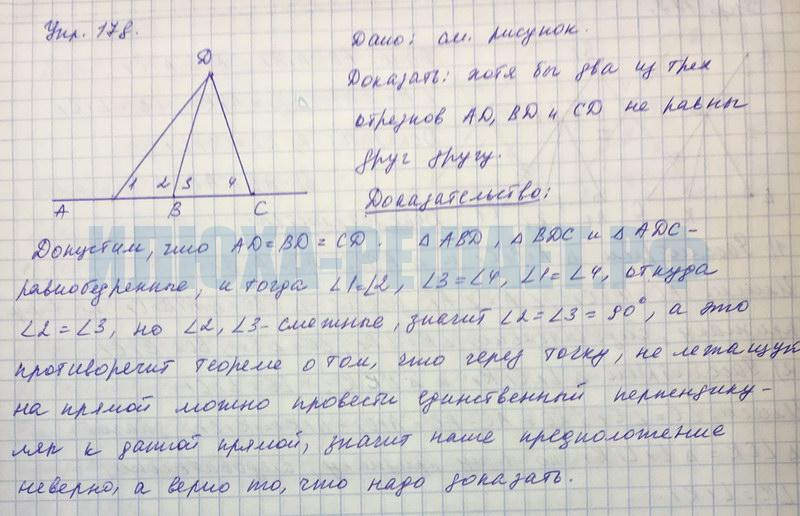 Упр. 178.
D
1 2 3 4
A B C
Дано: см. рисунок.
Доказать: хотя бы два из трех
отрезков AD, BD и CD не равны
друг другу.
Доказательство:
Допустим, что AD=BD=CD. △ABD, △BDC и △ADC-
равнобедренные, и тогда ∠1=∠2, ∠3=∠4, ∠1=∠4, откуда
∠2=∠3, но ∠2,∠3-смежные, значит ∠2=∠3=90°, а это
противоречит теореме о том, что через точку, не лежащую
на прямой можно провести единственный перпендику-
ляр к данной прямой, значит наше предположение
неверно, а верно то, что надо доказать.